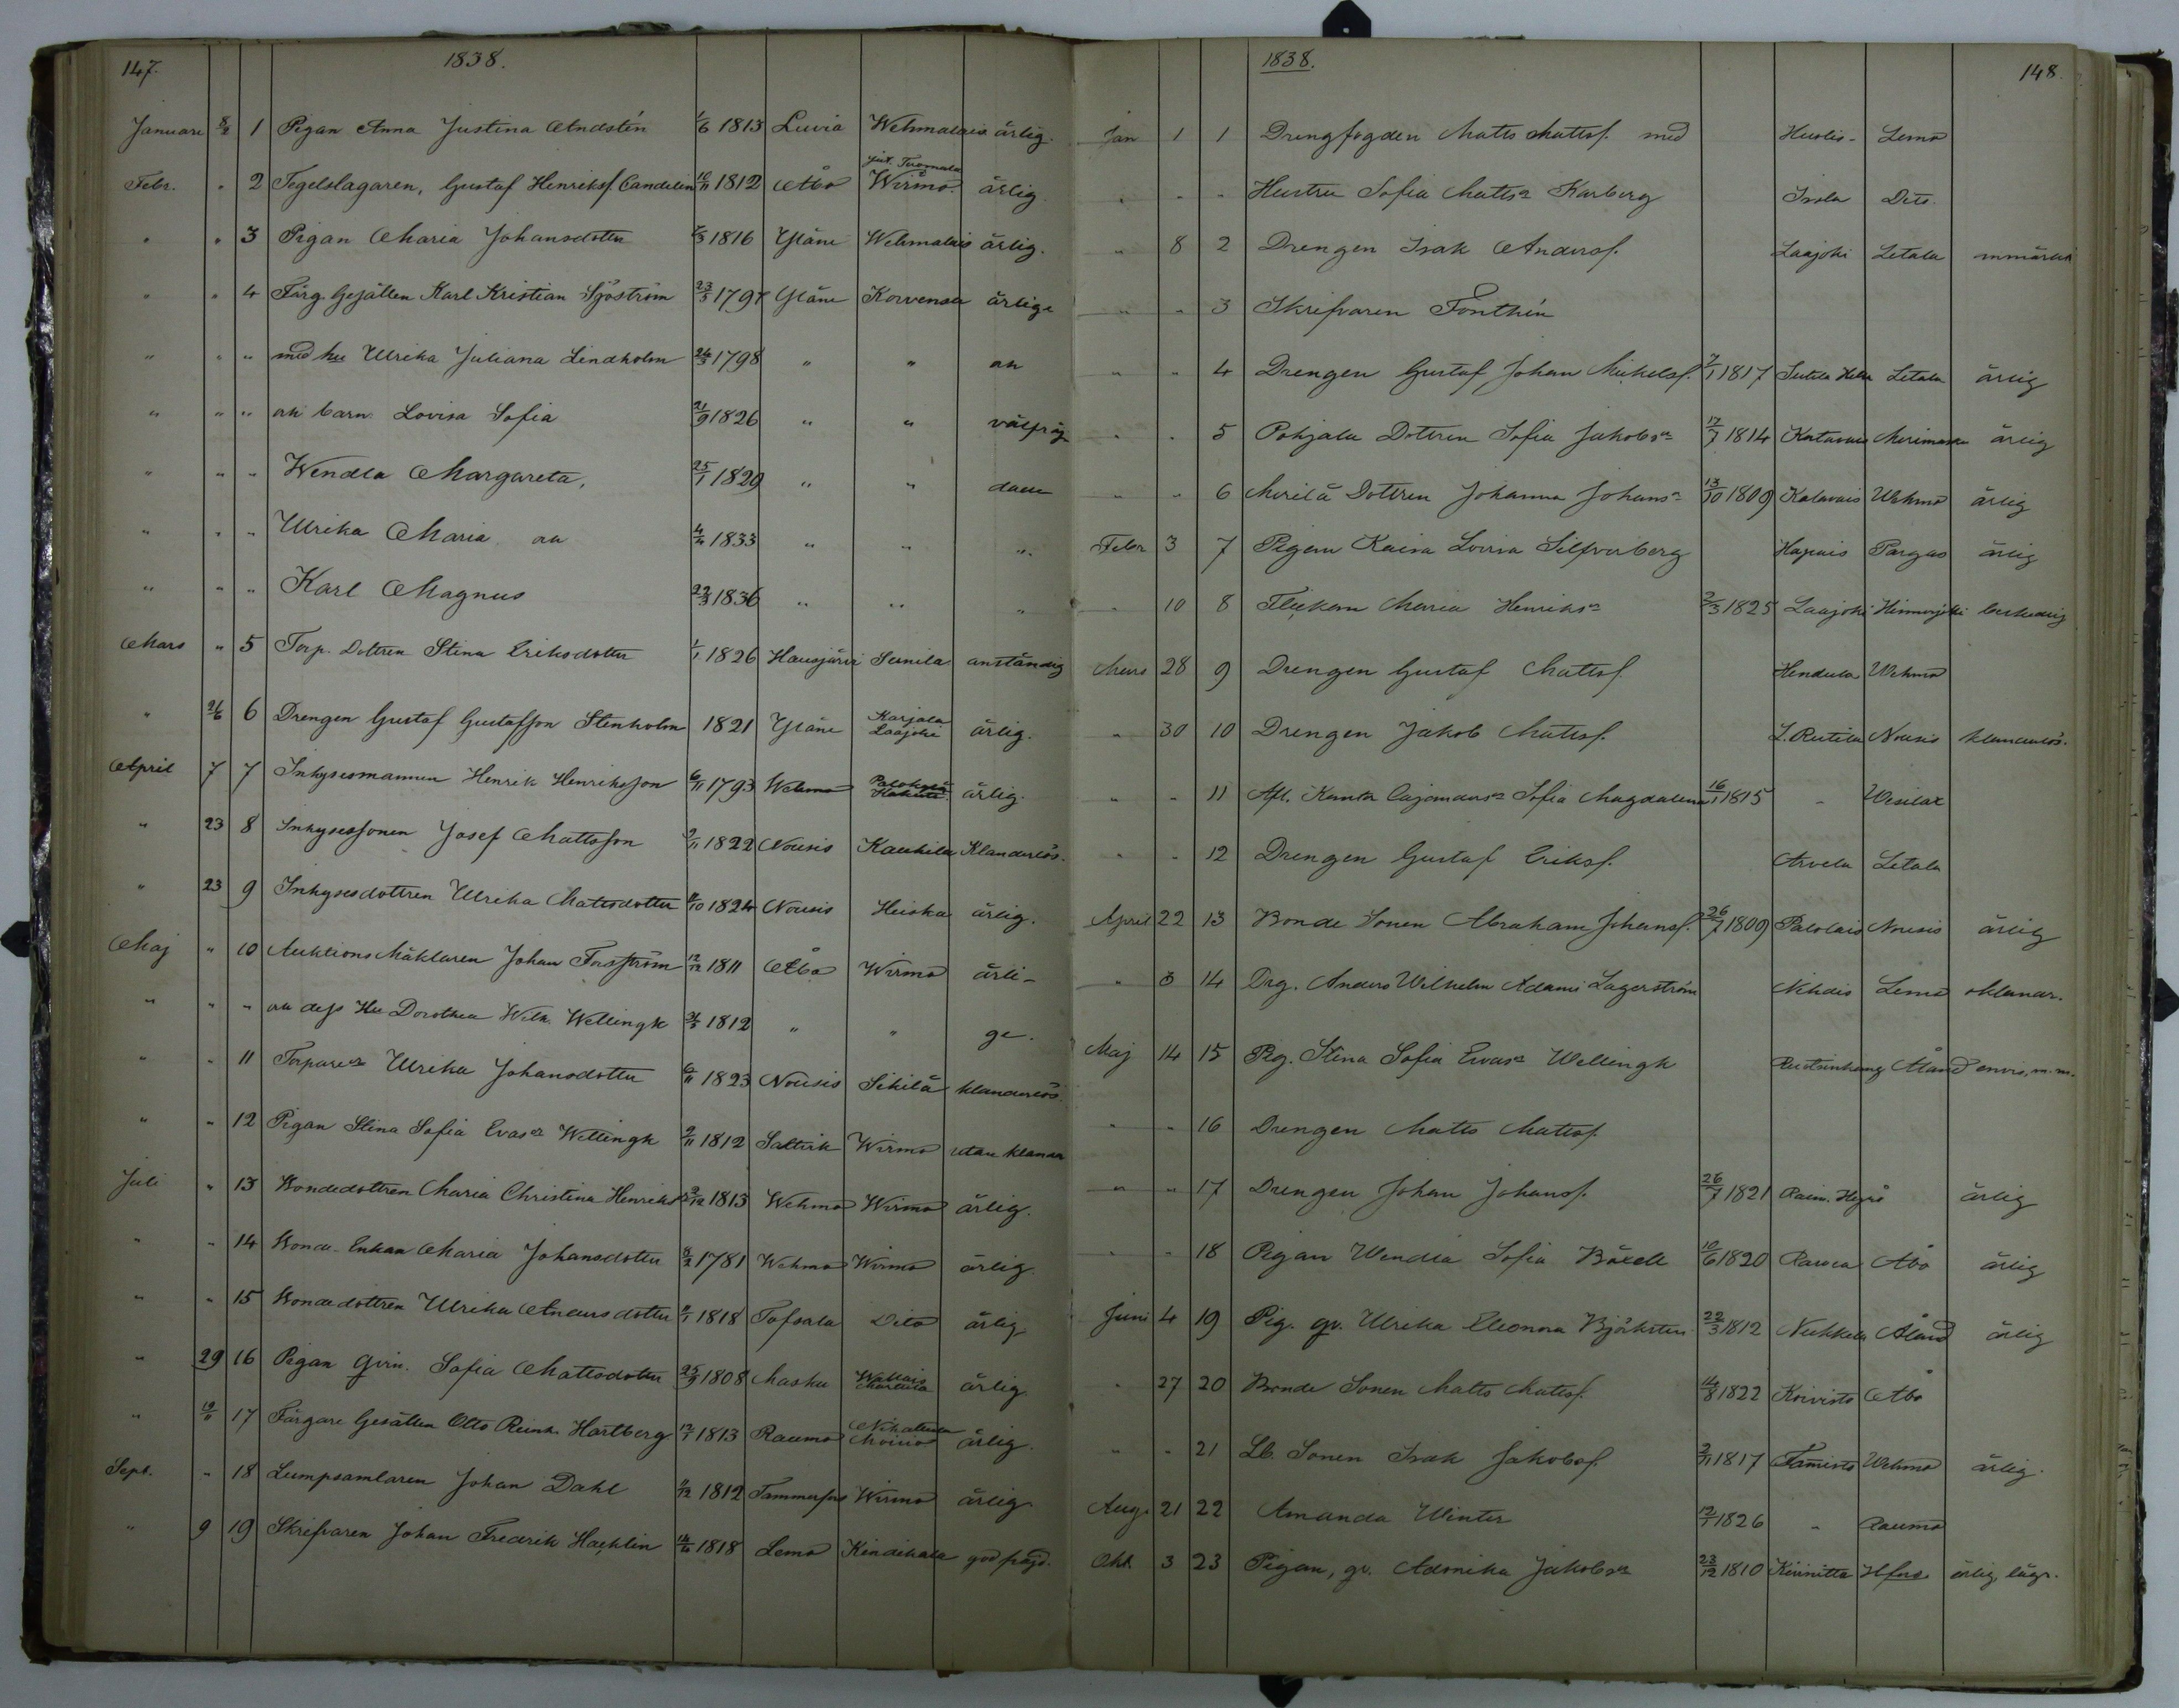 147.
1838.
Januari 8/2 1 Pigan Anna Justina Andstén 1/6 1813 Luvia Wehmalais ärlig.
Febr. " 2 Tegelslagaren, Gustaf Henriksf. Candelin 10/11 1812 Åbo Wirmo. ärlig.
" " 3 Pigan Maria Johansdotter 1816 Yläne Wehmalais ärlig.
" " 4 Färg. Gesällen Karl Kristian Sjöström 23/5 1797 Yläne Korvensu ärlige
" " " med hu Ulrika Juliana Lindholm 24/3 1798 " " och
" " " och barn Lovisa Sofia 21/9 1826 " " välfräj
" " " Wendla Margareta, 25/1 1829 " " dade
" " " Ulrika Maria och 4/4 1833 " " "
" " " Karl Magnus 22/3 1836 " " "
Mars " 5 Torp. Dottren Stina Eriksdotter 1/1 1826 Hausjärvi Sunila anständig
" 21/6 6 Drengen Gustaf Gustafsson Stenholm 1821 Yläne Karjala Laajoki ärlig.
April 7 7 Inhysesmannen Henrik Henriksson 6/11 1793 Wehmo ärlig.
" 23 8 Inhysessonen Josef Mattsson 2/11 1822 Nousis Kaukila Klanderlös.
" 23 9 Inhysesdottren Ulrika Mattsdotter 1824 Nousis Heiska ärlig.
Maj " 10 Auktions Mäklaren Johan Forsström 12/12 1811 Åbo Wirmo ärli-
" " " och dess Hu Dorothea Wilh. Wellingk 1812 " " ge.
" " 11 Torpare Ulrika Johansdotter 1823 Nousis Sikilä klanderlös.
" " 12 Pigan Stina Sofia Evas Wellingk 2/11 1812 Saltvik Wirmo utan klander
Juli " 13 Bondedottren Maria Christina Henriks 1813 Wehmo Wirmo ärlig.
" " 14 Bonde Enkan Maria Johansdotter 1781 Wehmo Wirmo ärlig.
" " 15 Bondedottren Ulrika Andersdotter 1818 Tofsala Dito ärlig
" 29 16 Pigan qvin. Sofia Mattsdotter 25/9 1808 Masku ärlig.
" 19/11 17 Färgare Gesällen Otto Reinh. Hartberg 1813 Raumo Nihattula Moisio ärlig.
Sept. " 18 Lumpsamlaren Johan Dahl 1812 Tammerfors Wirmo ärlig
" 9 19 Skrifvaren Johan Fredrik Hacklin 1818 Lemo Kindikala god fräjd.
1838.
148.
Jan 1 1 Drengfogden Matts Mattsf. med Huolis- Lemo
" " " Hustru Sofia Matts Karberg Isola Dito.
" 8 2 Drengen Isak Andersf. Laajoki Letala
" " 3 Skrifvaren Fonthén
" " 4 Drengen Gustaf Johan Mickelsf. 7/1 1817 Letala ärlig
" " 5 Pohjala Dottren Sofia Jakobs 17/7 1814 Katavais Merimasku ärlig
" " 6 Merilä Dottren Johanna Johans 13/10 1809 Kalavais Wehmo ärlig
Febr 3 7 Pigan Kaisa Lovisa Silfverberg Hapais Pargas ärlig
" 10 8 Flickan Maria Henriks 2/3 1825 Laajoki Hinnerjoki beskedlig
Mars 28 9 Drengen Gustaf Mattsf. Hendula Wehmo
" 30 10 Drengen Jakob Mattsf. L. Rutila Nousis klanderlös.
" " 11 Afl. Kantr. Cajanders Sofia Magdalena 16/1 1815 " Wesilax
" " 12 Drengen Gustaf Eriksf. Arvela Letala
April 22 13 Bonde Sonen Abraham Johansf. 26/2 1809 Palolais Nousis ärlig
" 3 14 Drg. Anders Wilhelm Adams Lagerström Nihdis Lemo oklandr.
Maj 14 15 Pig. Stina Sofia Evas Wellingk Åland m.m.
" " 16 Drengen Matts Mattsf.
" " 17 Drengen Johan Johansf. 26/7 1821 ärlig
" " 18 Pigan Wendla Sofia Böxell 10/6 1820 Åbo ärlig
Juni 4 19 Pig. qv. Ulrika Eleonora Björksten 22/3 1812 Nukkela Åland ärlig
" 27 20 Bonde Sonen Matts Mattsf. 14/8 1822 Koivisto Åbo
" " 21 Lb. Sonen Isak Jakobsf. 3/11 1817 Tamisto Wehmo ärlig.
Aug. 21 22 Amanda Winter 12/7 1826 " Raumo
Okt. 3 23 Pigan, qv. Admika Jakobs 23/12 1810 Kiinitta Hfors ärlig